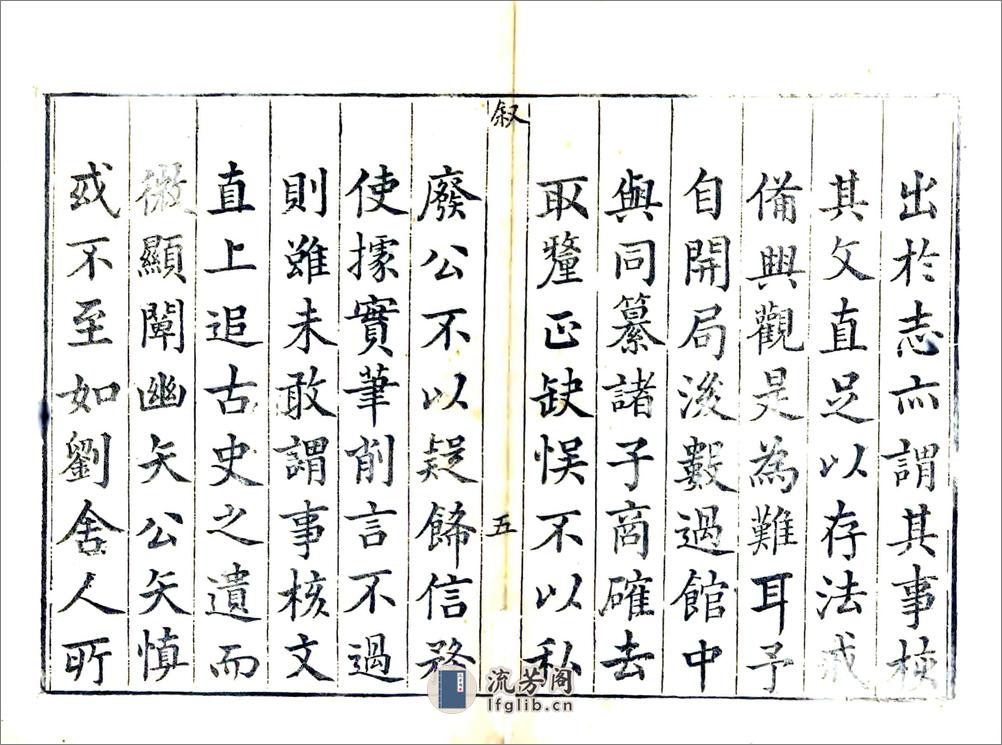 出於志亦謂其事核
其文直足以存法戒
備興觀是為難耳予
自開局後數過館中
與同纂諸子商確去
取釐正缺悮不以私
叙
五
廢公不以疑餙信務
使據實筆削言不過
則雖未敢謂事核文
直上追古史之遺而
微顯闡幽矢公矢慎
或不至如劉舍人所
流芳阁
lfglib.cn